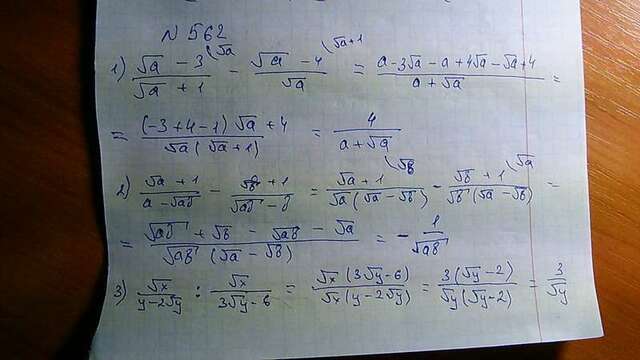 N 562
1) (√a - 3)/(√a + 1) (√a - (√a - 4)/√a (√a+1 = (a - 3√a - a + 4√a - √a + 4)/(a + √a) =
= ((-3+4-1)√a + 4)/(√a(√a+1)) = 4/(a+√a)
2) (√a + 1)/(a - √ab) - (√b + 1)/(√ab - b) = (√a + 1)/(√a(√a - √b)) (√b - (√b + 1)/(√b(√a - √b)) (√a =
= (√ab + √b - √ab - √a)/(√ab (√a - √b)) = - 1/√ab
3) √x/(y-2√y) : √x/(3√y-6) = √x(3√y-6)/(√x(y-2√y)) = 3(√y-2)/(√y(√y-2)) = 3/√y